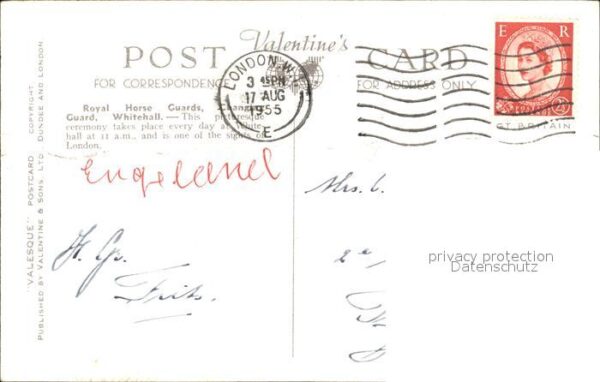 Valentine's
POST CARD
FOR CORRESPONDENCE
FOR ADDRESS ONLY
Royal Horse Guards, Changing
Guard, Whitehall. — This picturesque
ceremony takes place every day at White-
hall at 11 a.m. and is one of the sights of
London.
"VALESQUE" POSTCARD COPYRIGHT
PUBLISHED BY VALENTINE & SONS, LTD. DUNDEE AND LONDON.
LONDON W.1
3 15 PM
17 AUG
1955
E
E R
2½
GT. BRITAIN
Engeland
H. Gr.
Frits.
Mrs.
2e
privacy protection
Datenschutz